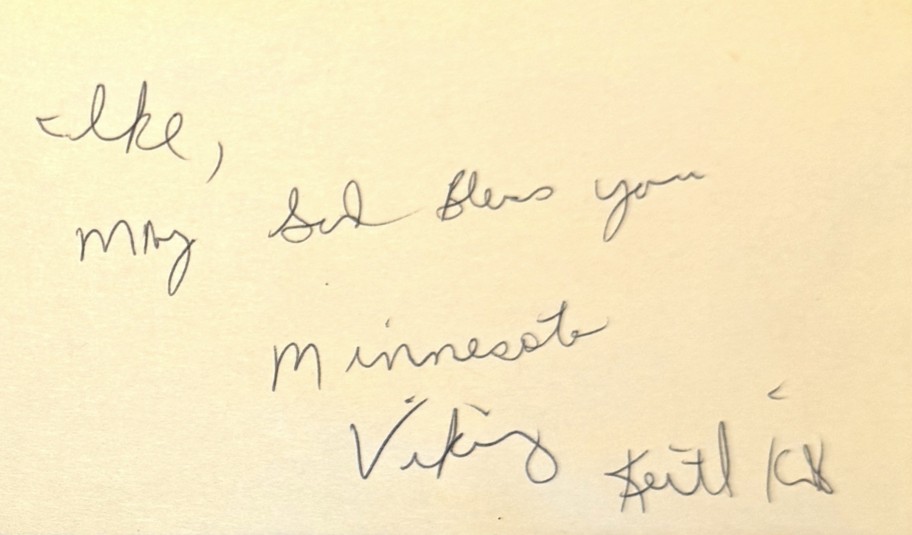 Ike,
May God Bless you
Minnesota
Viking Keith